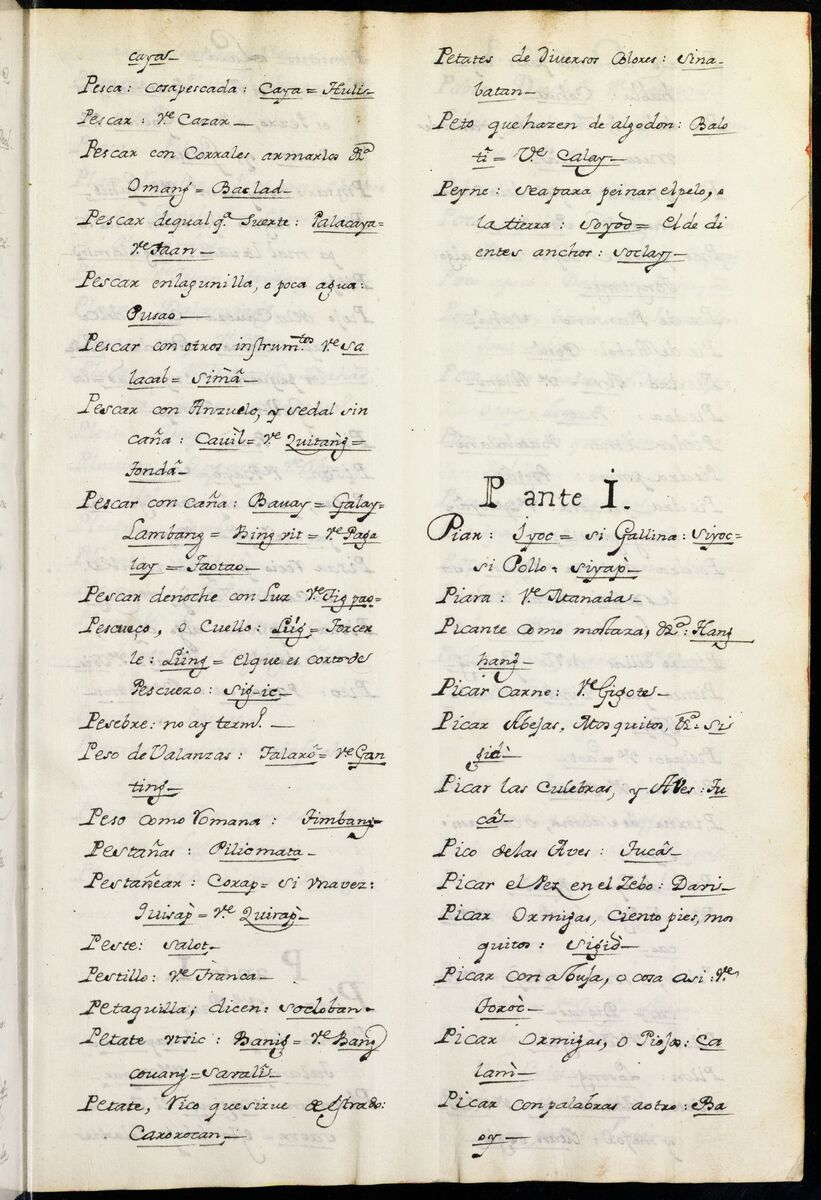 cayas_
Pesca: cosapescada: Caya= Hulis_
Pescar: Vᵉ Cazar_
Pescar con Corrales armarlos &ᵃ
Omang= Baclad_
Pescar dequal qᵃ Suerte: Palacaya=
Vᵉ Taan_
Pescar enlagunilla, o poca agua:
Pusao_
Pescar con otros instrumᵗᵒˢ Vᵉ Sa
lacab= Simâ_
Pescar con Anzuelo, y sedal sin
caña: Cauìl= Vᵉ Quitàng=
Tondâ_
Pescar con caña: Bauay= Galay=
Lambang= Bingvit= Vᵉ Paga
lay= Taotao_
Pescar denoche con Luz Vᵉ Tigpao_
Pescueço, o Cuello: Liig= Torcer
le: Liing= elque es cortode
Pescuezo: Sigic_
Pesebre: no ay termᵒ. _
Peso deValanzas: Talarô= Vᵉ Gan
ting_
Peso como Romana: Timbang_
Pestañas: Pilicmata_
Pestañear: Corap= si vnavez:
Quisap= Vᵉ Quirap_
Peste: Salot_
Pestillo: Vᵉ Tranca_
Petaquilla, dicen: Socloban_
Petate vtsic: Banig= Vᵉ Bang
couang= Sasali_
Petate, Rico quesirve destrado:
Caxoxocan_
Petates de Diversos Colores: Sina
batan_
Peto quehazen de algodon: Balo
tî= Vᵉ Calay_
Peyne: seapara peinar elpelo, o
la tierra: soyod= elde di
entes anchos: soclay_
P ante I.
Piar: Iyoc= si Gallina: Siyoc=
si Pollo: siyap_
Piara: Vᵉ Manada_
Picante como mostaza, &ᵃ: Hang
hang_
Picar carne: Vᵉ Gigote_
Picar Abejas, Mosquitos, &ᵃ: Si
gid_
Picar las Culebras, y Aves: Tu
câ_
Pico delas Aves: Tucâ_
Picar el Pez en el Zebo: Daris_
Picar Ormigas, Ciento pies, mos
quitos: sigid_
Picar con abuja, o cosa asi: Vᵉ
Toroc_
Picar Ormigas, o Piojos: Ca
lami_
Picar conpalabras aotro: Ba
oy_